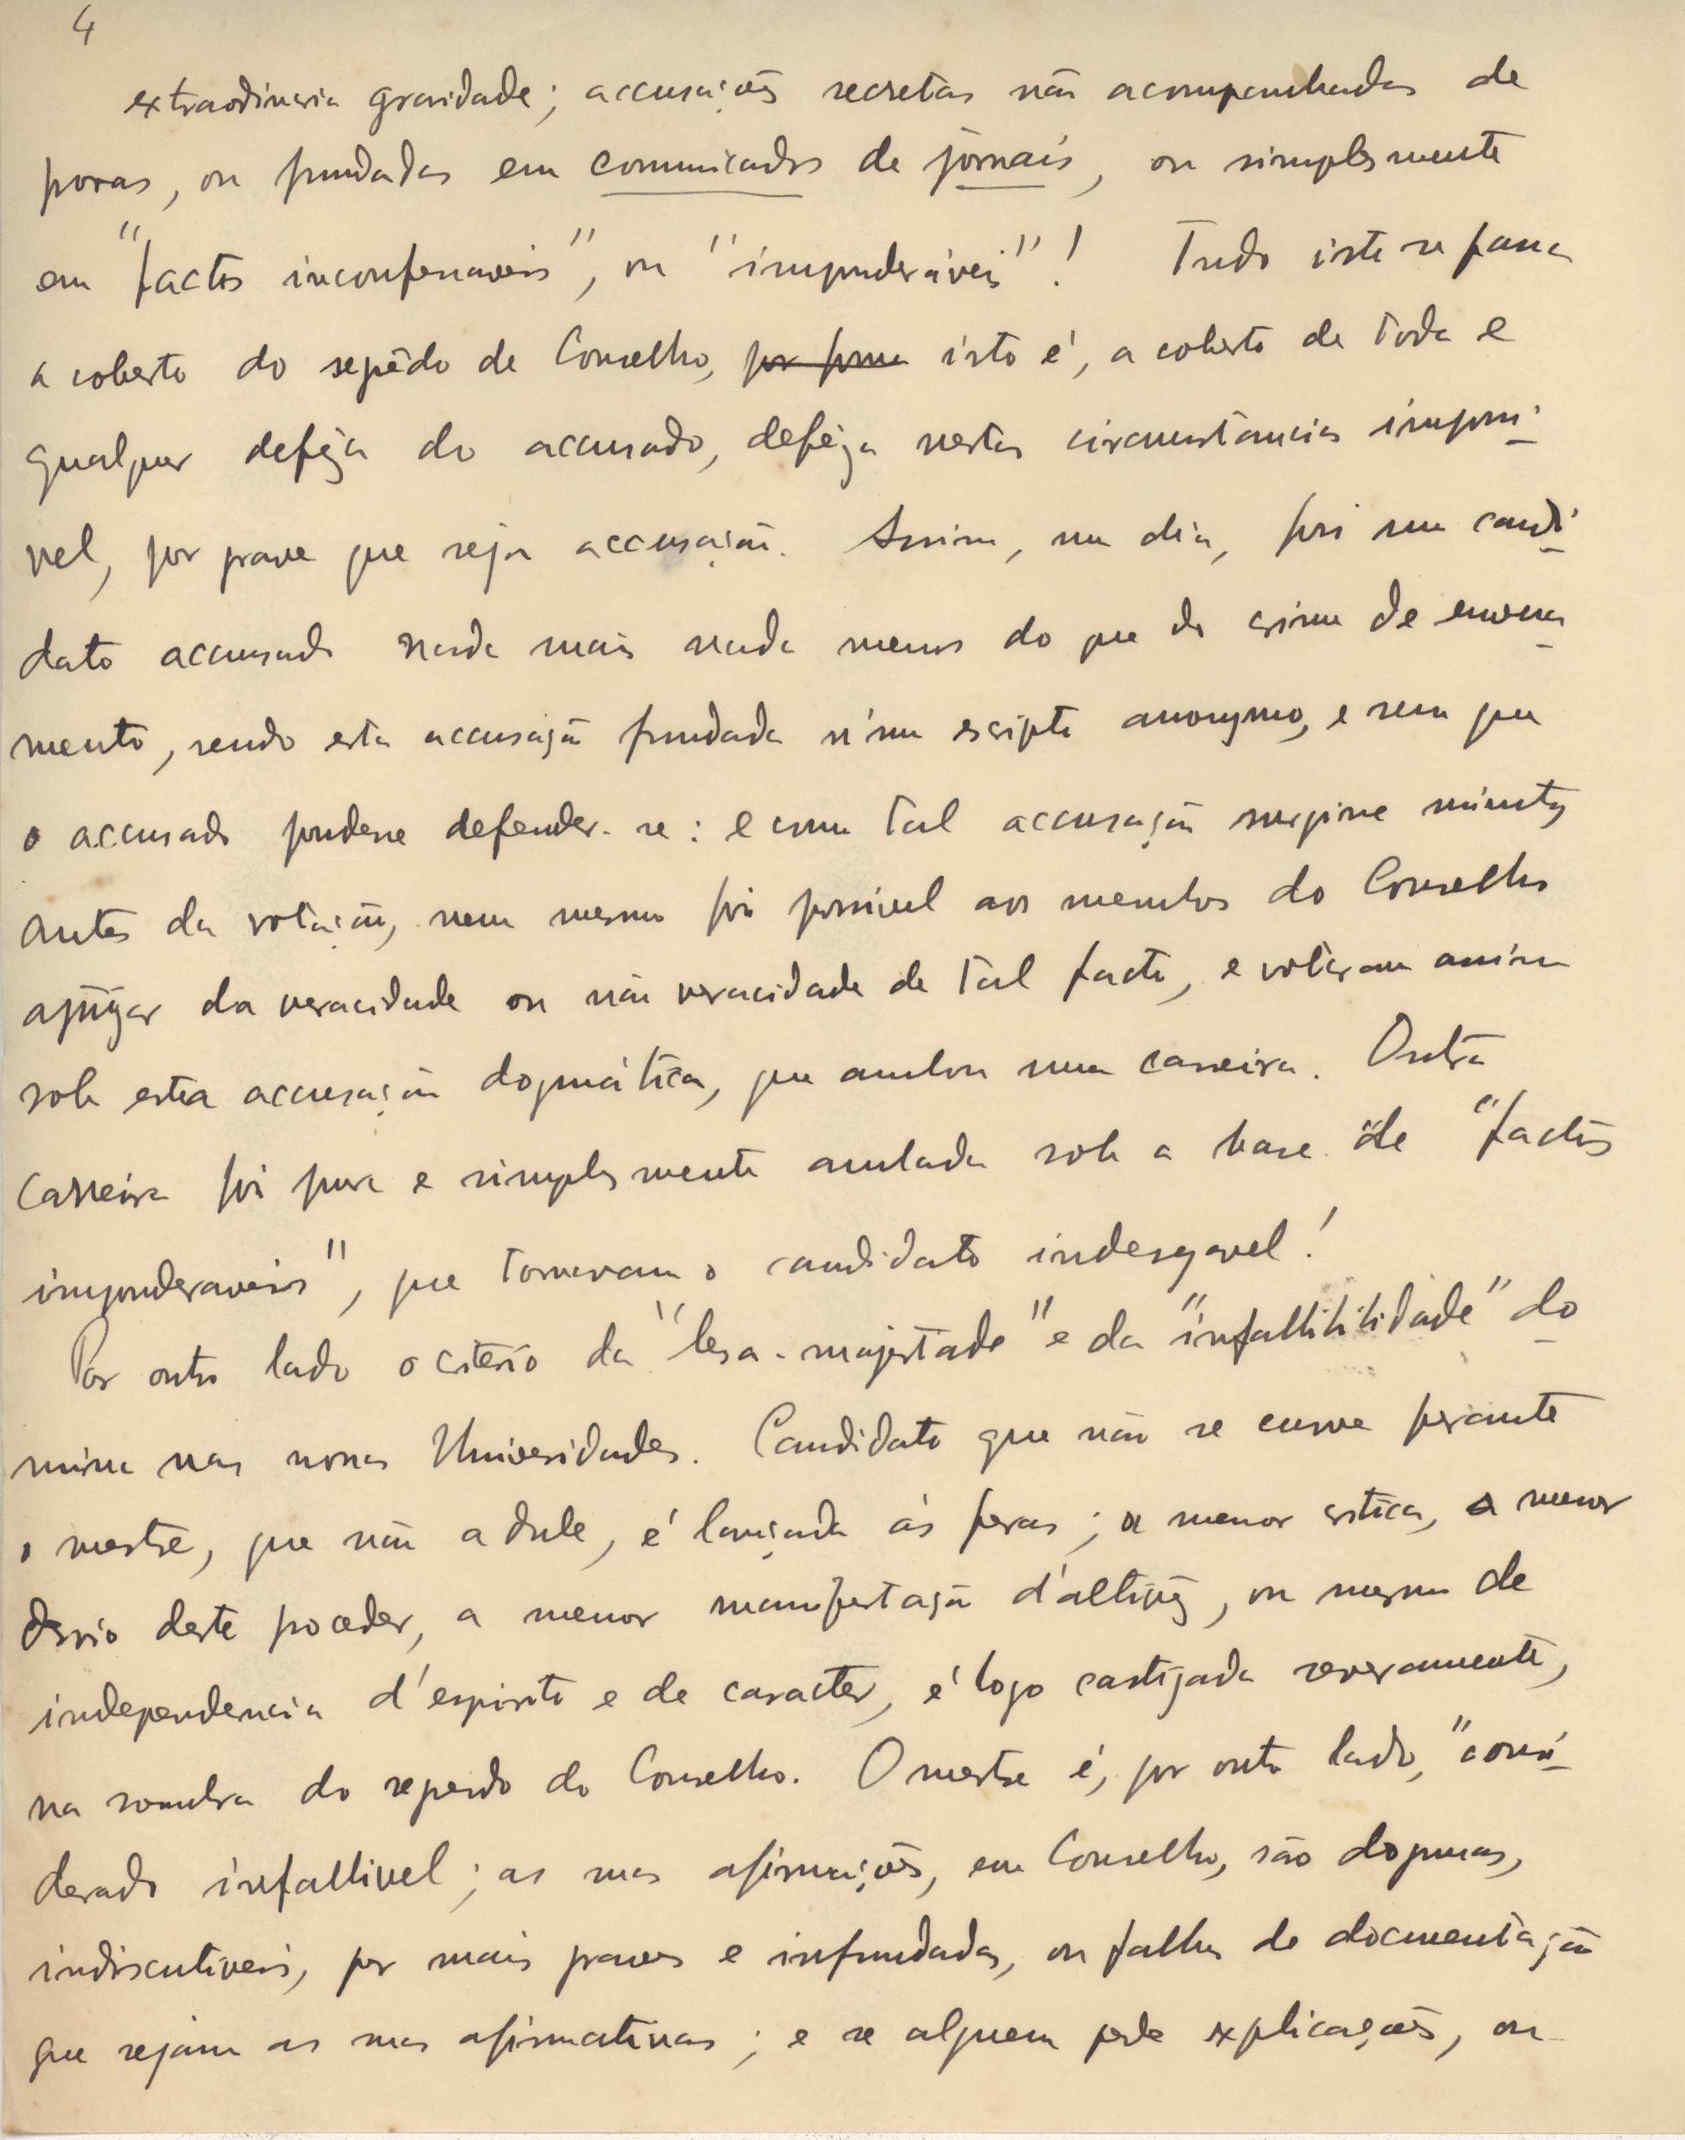 4
extraordinaria gravidade; accusações secretas não acompanhadas de
provas, ou fundadas em comunicados de jornais, ou simplesmente
em "factos inconfessaveis", ou "imponderáveis"! Tudo isto se passa
a coberto do segrêdo de Conselho, por forma isto é, a coberto de toda e
qualquer defêza do accusado, defêza nestas circunstâncias impossi-
vel, por grave que seja accusação. Assim, um dia, foi um candi-
dato accusado nada mais nada menos do que do crime de envena-
mento, sendo esta accusação fundada n'um escripto anonymo, e sem que
o accusado pudesse defender-se: e como tal accusação surgisse minutos
antes da votação, nem mesmo foi possivel aos membros do Conselho
ajuizar da veracidade ou não veracidade de tal facto, e votaram assim
sob esta accusação dogmática, que anulou uma carreira. Outra
carreira foi pura e simplesmente anulada sob a base de "factos
imponderaveis", que tornavam o candidato indesejavel!
Por outro lado o criterio da "lesa-majestade" e da "infallibilidade" do-
mina nas nossas Universidades. Candidato que não se curve perante
o mestre, que não adule, é lançado às feras; a menor critica, a menor
desvio deste proceder, a menor manifestação d'altivez, ou mesmo de
independencia d'espirito e de caracter, é logo castigada severamente,
na sombra do segredo do Conselho. O mestre é, por outro lado, "consi-
derado infallivel; as suas afirmações, em Conselho, são dogmas,
indiscutiveis, por mais graves e infundadas, ou falhas de documentação
que sejam as suas afirmativas; e se alguem pede explicações, ou